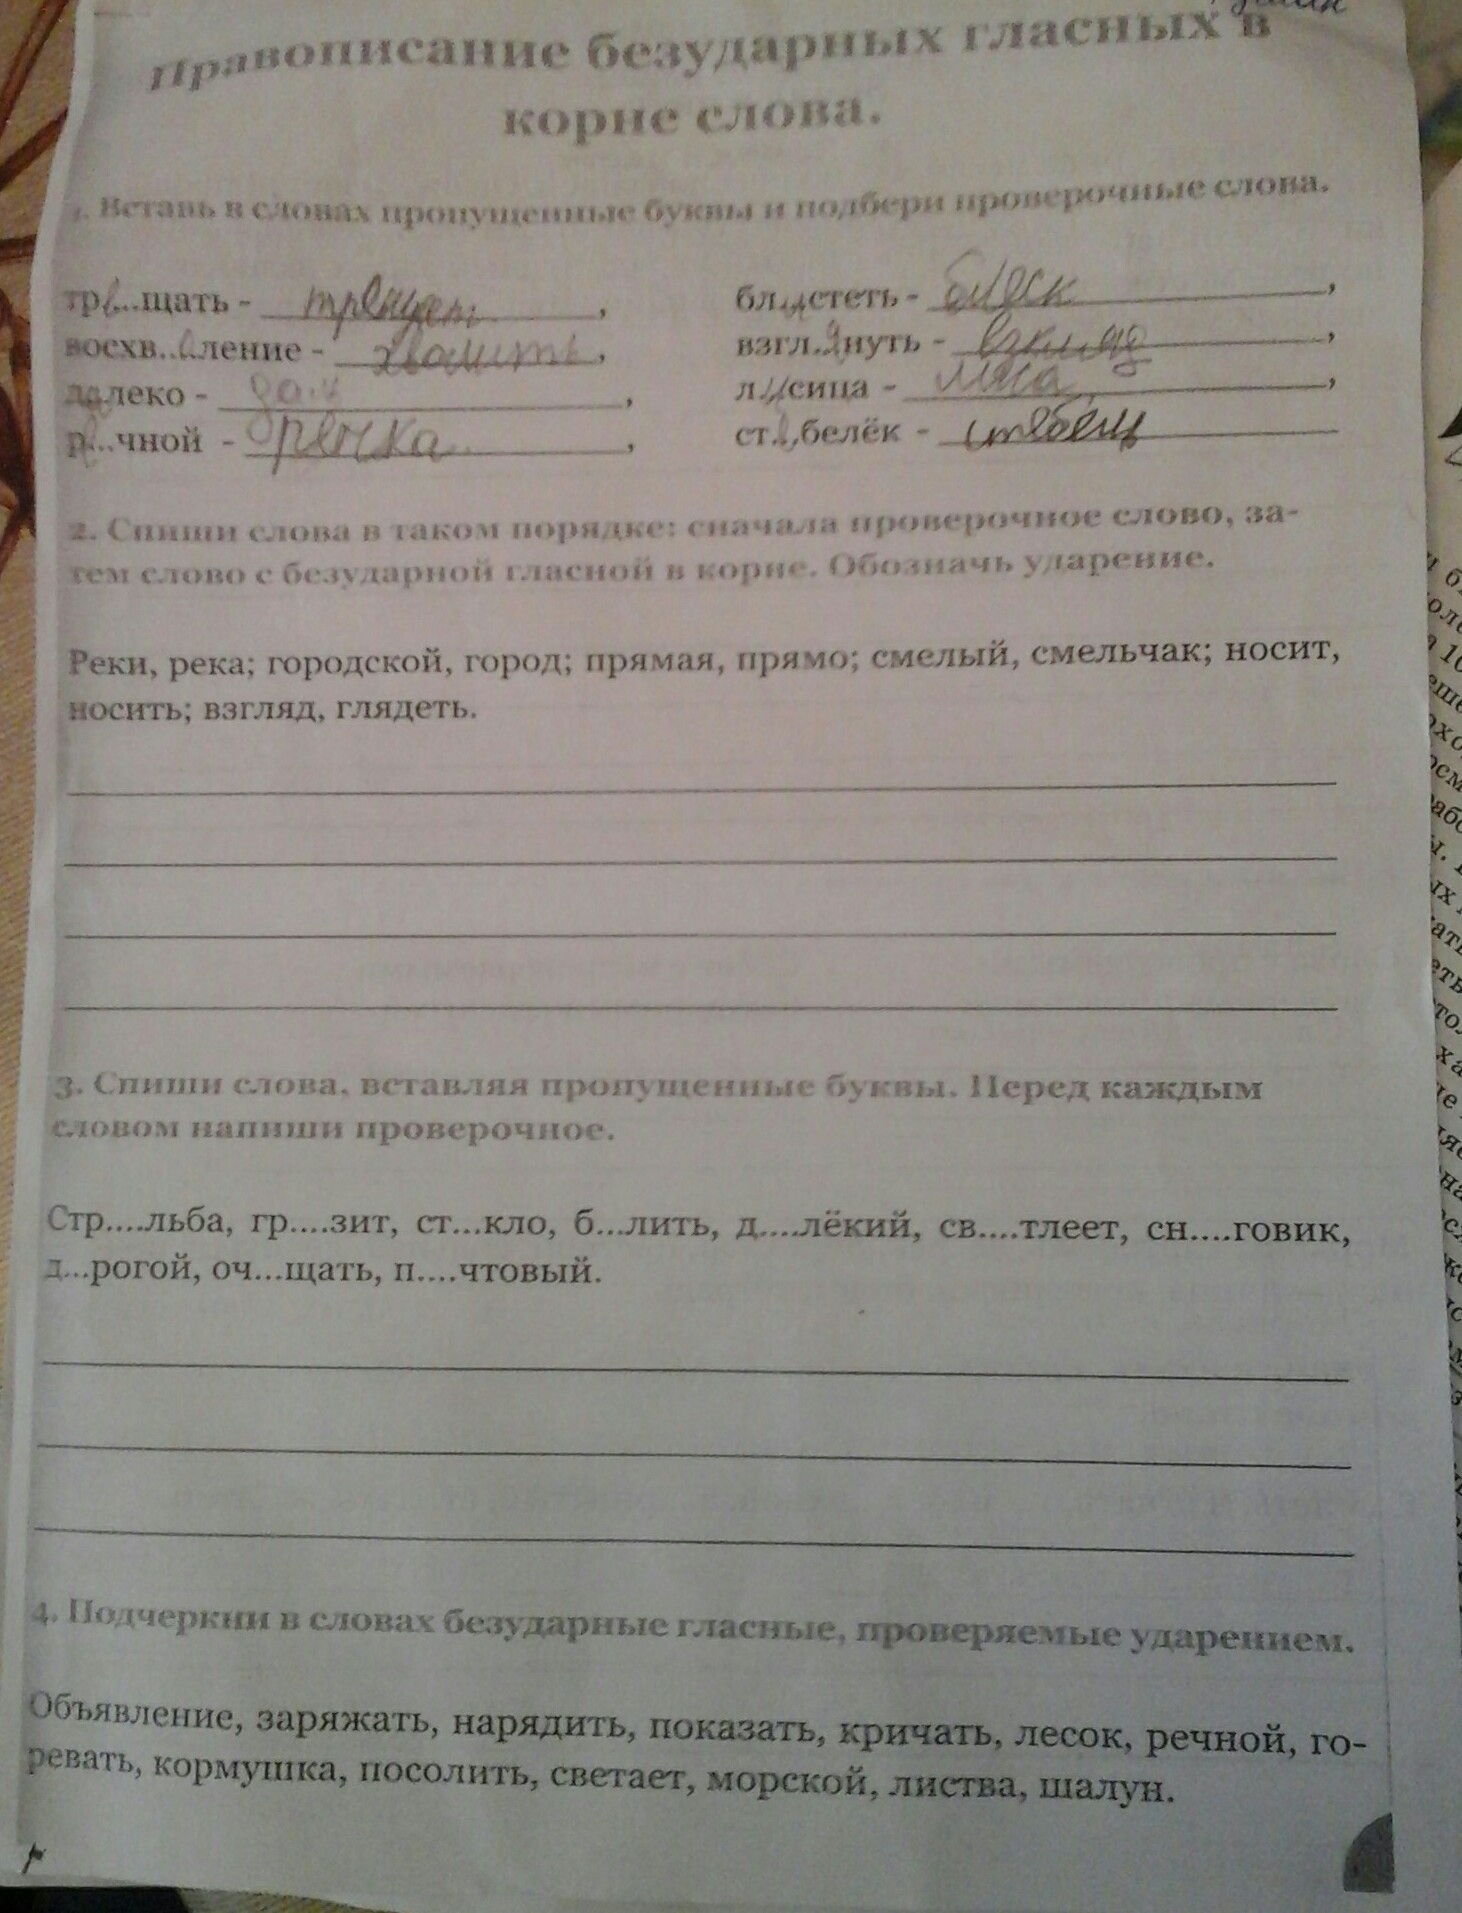 Правописание безударных гласных в
корне слова.
1. Вставь в словах пропущенные буквы и подбери проверочные слова.
тре...щать - трещет, бл..истеть - блеск,
восхв..аление - хвалить, взгл.януть - взгляд,
далеко - даль, л..исица - лиса,
ре...чной - речка, сте..белёк - стебель
2. Спиши слова в таком порядке: сначала проверочное слово, за-
тем слово с безударной гласной в корне. Обозначь ударение.
Реки, река; городской, город; прямая, прямо; смелый, смельчак; носит,
носить; взгляд, глядеть.
3. Спиши слова, вставляя пропущенные буквы. Перед каждым
словом напиши проверочное.
Стр....льба, гр....зит, ст...кло, б...лить, д....лёкий, св....тлеет, сн....говик,
д...рогой, оч...щать, п....чтовый.
4. Подчеркни в словах безударные гласные, проверяемые ударением.
Объявление, заряжать, нарядить, показать, кричать, лесок, речной, го-
ревать, кормушка, посолить, светает, морской, листва, шалун.